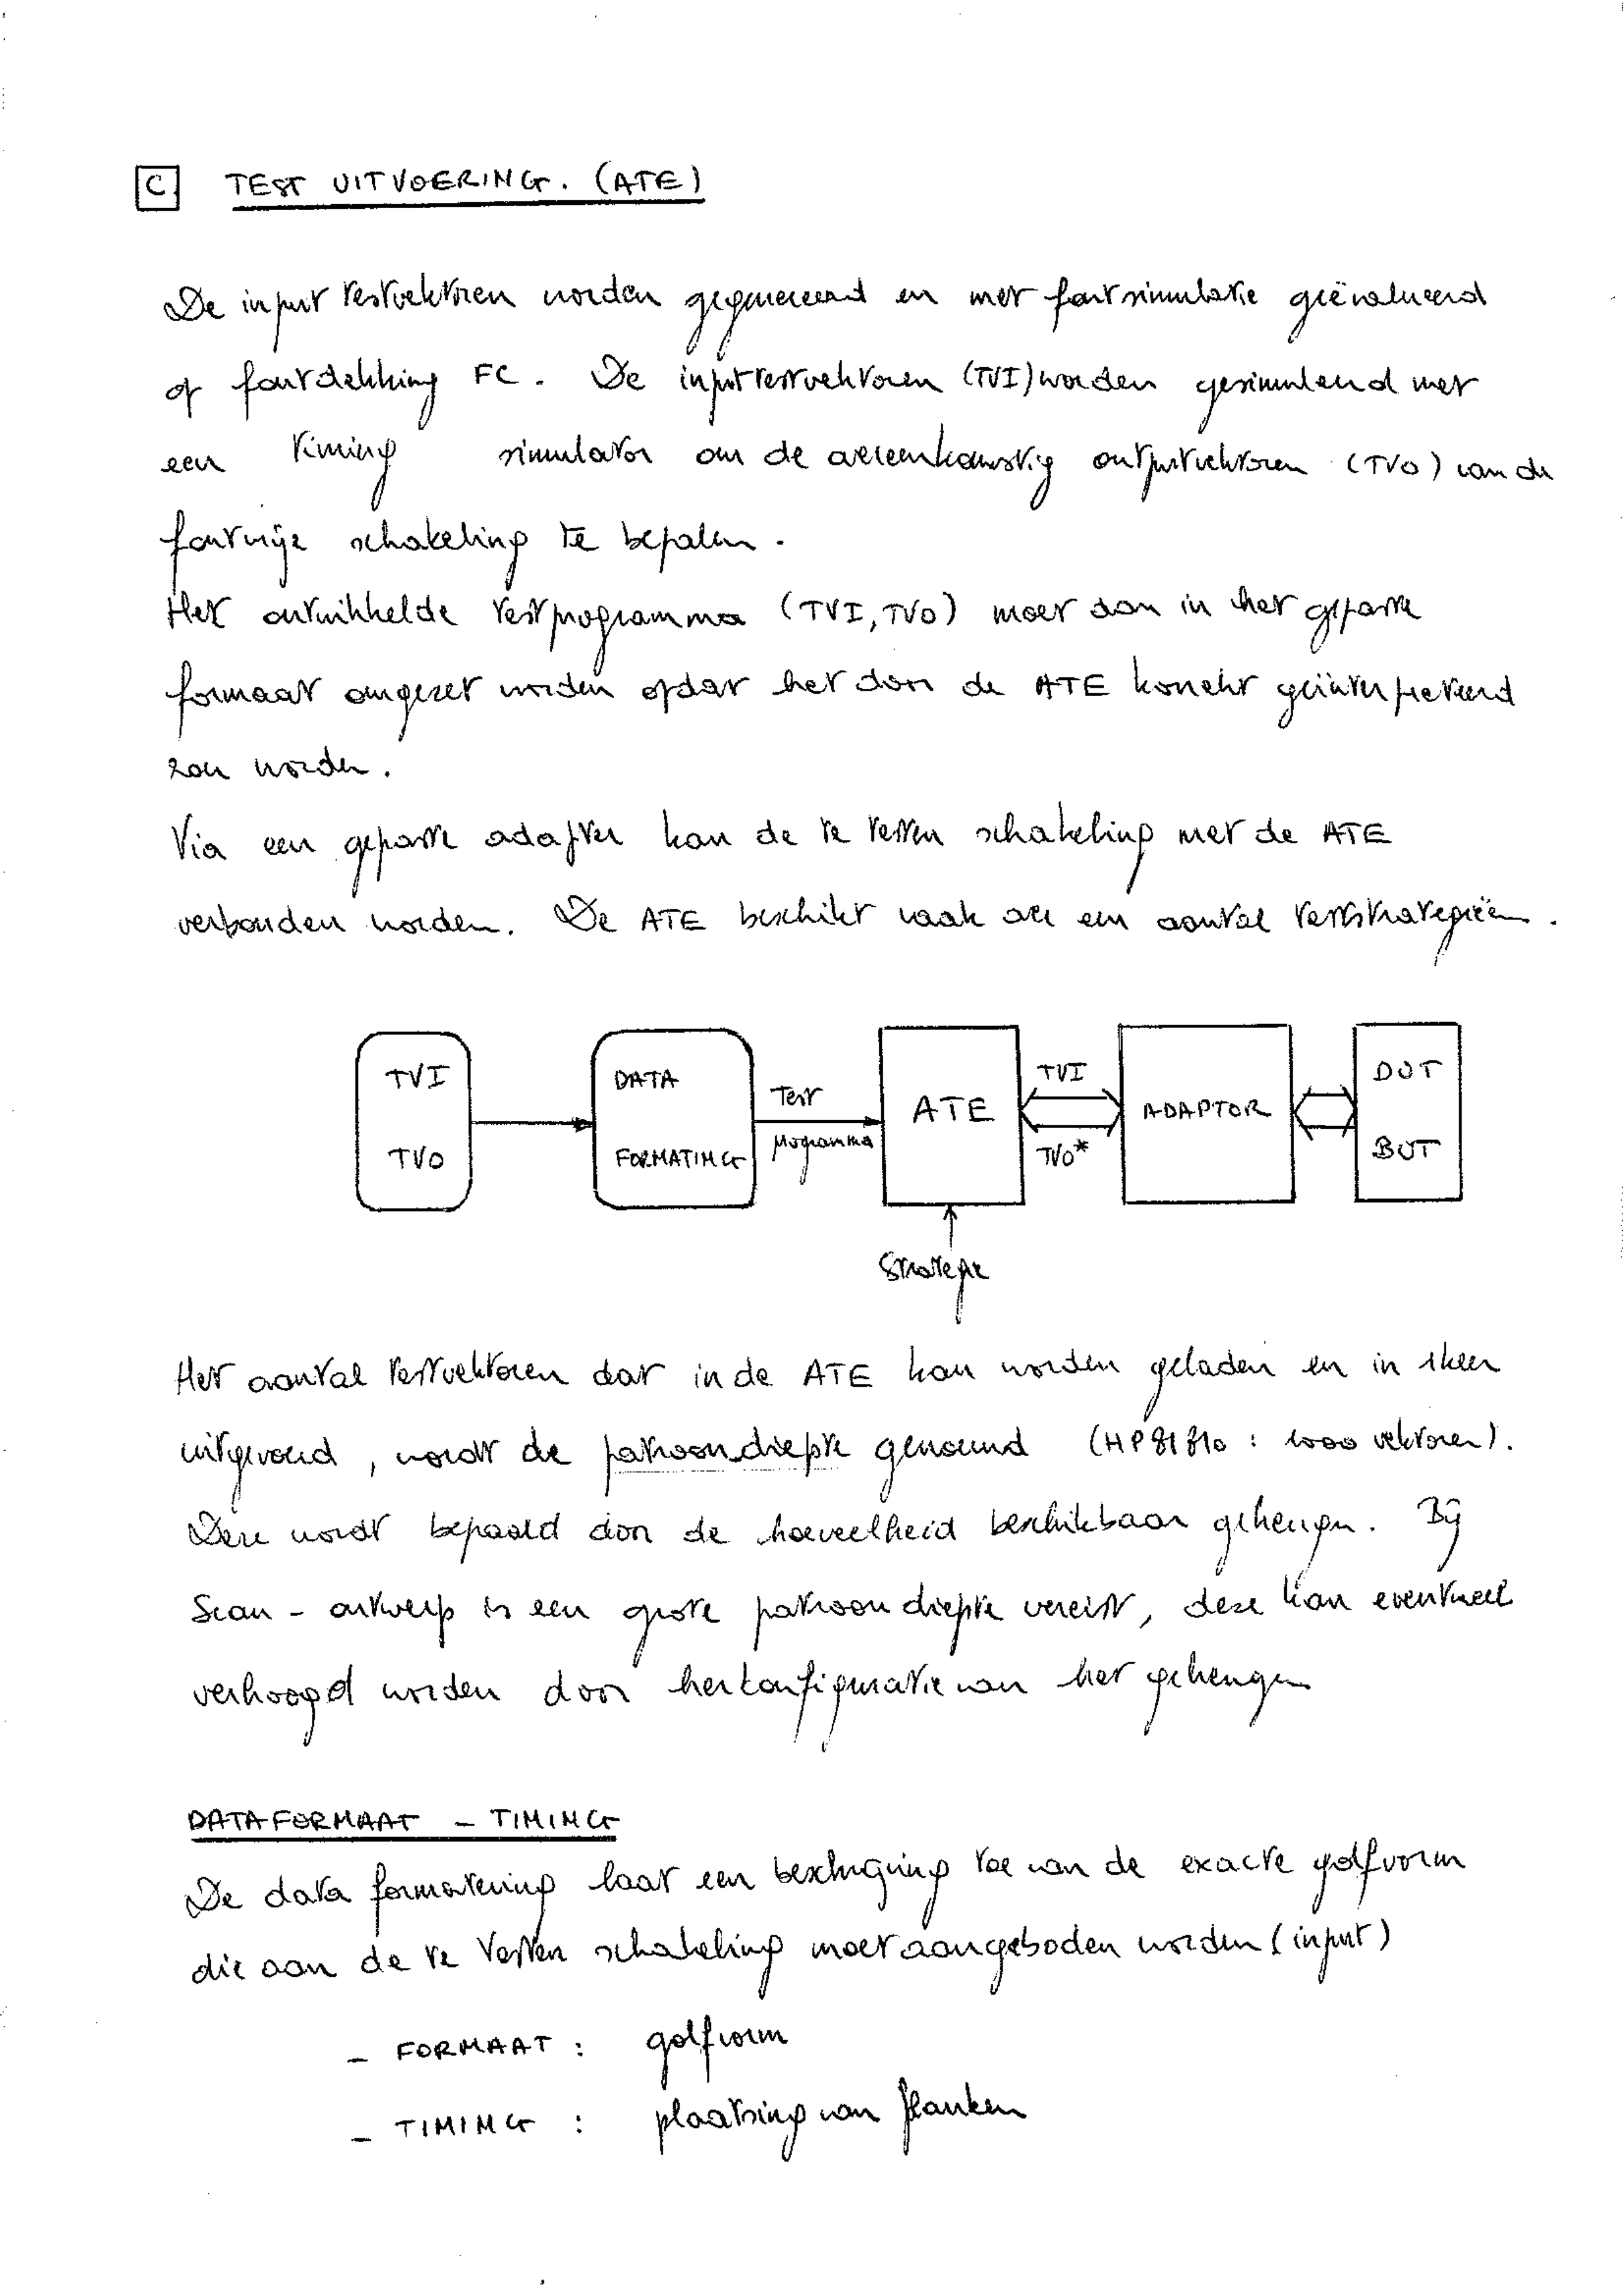 C TEST UITVOERING. (ATE)
De input testvektoren worden gegenereerd en met foutsimulatie geëvalueerd
op foutdekking FC. De inputtestvektoren (TVI) worden gesimuleerd met
een timing simulator om de overeenkomstig outputvektoren (TVO) van de
foutvrije schakeling te bepalen.
Het ontwikkelde testprogramma (TVI, TVO) moet dan in het gepaste
formaat omgezet worden opdat het door de ATE korrekt geïnterpreteerd
zou worden.
Via een gepaste adapter kan de te testen schakeling met de ATE
verbonden worden. De ATE beschikt vaak over een aantal teststrategieën.
TVI
TVO
DATA
FORMATING
Test
programma
ATE
Strategie
TVI
TVO*
ADAPTOR
DUT
BUT
Het aantal testvektoren dat in de ATE kan worden geladen en in 1 keer
uitgevoerd, wordt de patroondiepte genoemd (HP81810 : 1000 vektoren).
Deze wordt bepaald door de hoeveelheid beschikbaar geheugen. Bij
Scan - ontwerp is een grote patroondiepte vereist, deze kan eventueel
verhoogd worden door herkonfiguratie van het geheugen
DATAFORMAAT - TIMING
De data formatering laat een beschrijving toe van de exacte golfvorm
die aan de te testen schakeling moet aangeboden worden (input)
- FORMAAT : golfvorm
- TIMING : plaatsing van flanken